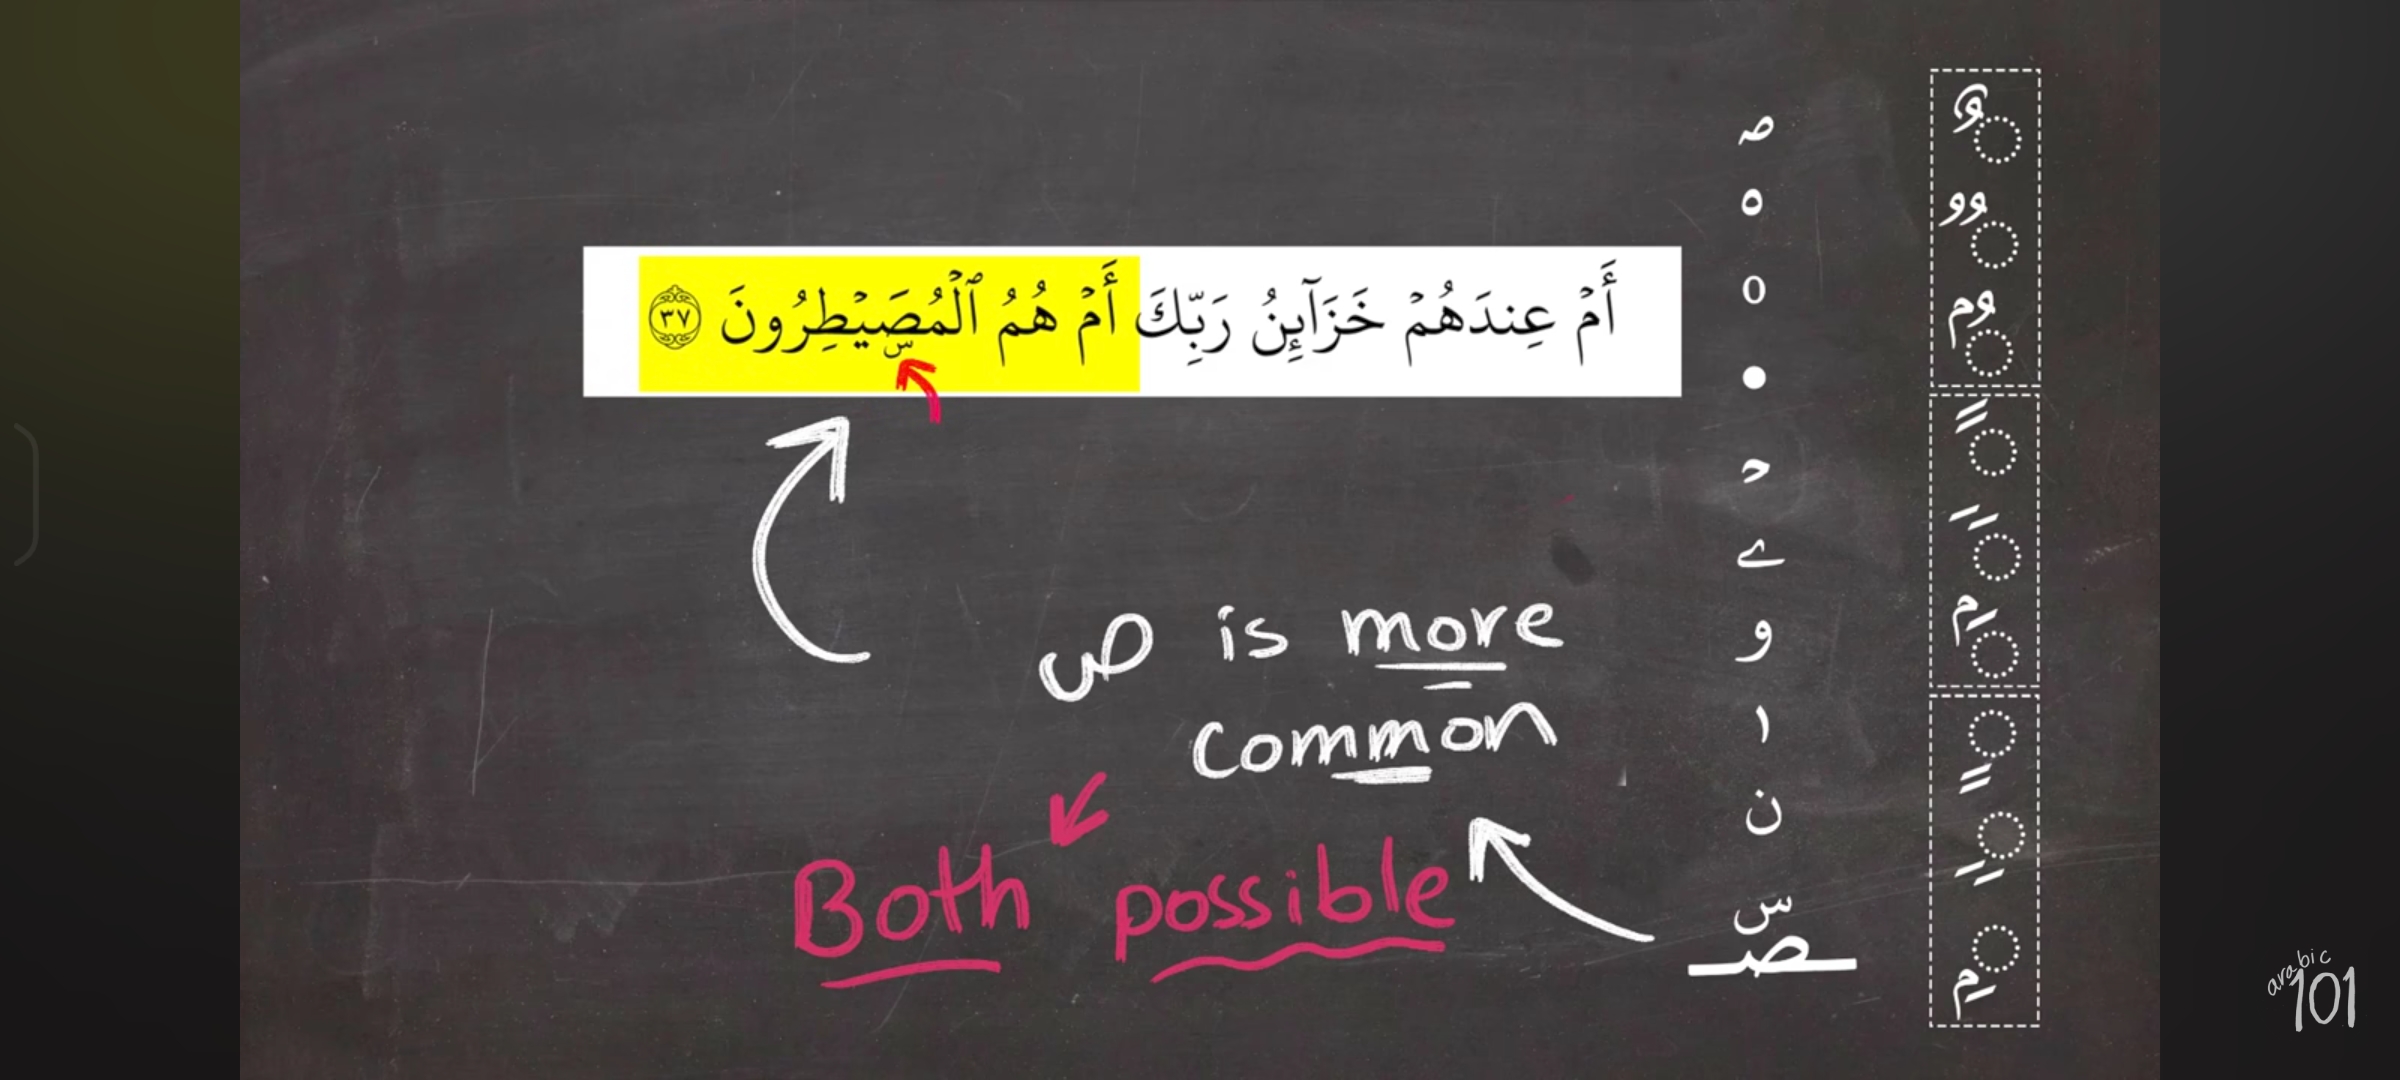 أَمْ عِندَهُمْ خَزَآئِنُ رَبِّكَ أَمْ هُمُ ٱلْمُصَۣيْطِرُونَ ٣٧
ص is more
common
Both possible
صہ
ه
o
●
ح
ے
و
ا
ن
س
صـ
arabic
101